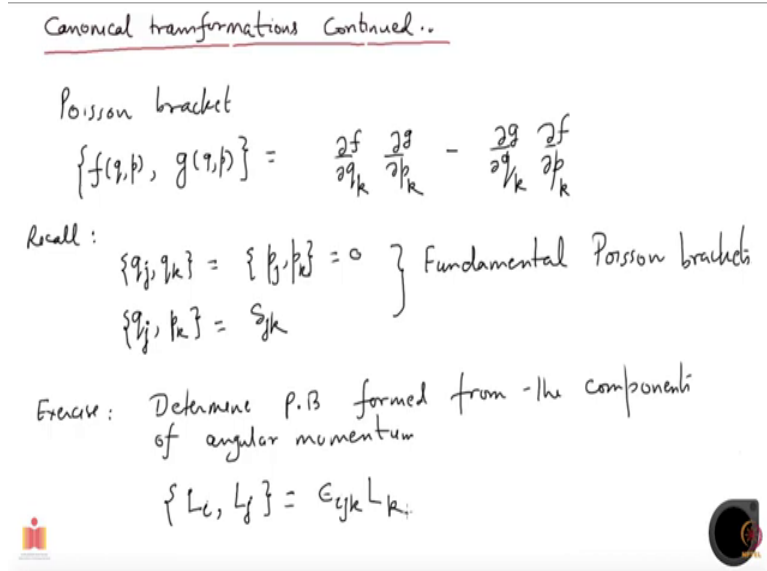 Canonical transformations Continued..
Poisson bracket
{f(q,p), g(q,p)} = ∂f/∂q_k ∂g/∂p_k - ∂g/∂q_k ∂f/∂p_k
Recall :
{q_j, q_k} = {p_j, p_k} = 0 } Fundamental Poisson brackets
{q_j, p_k} = δ_jk
Exercise : Determine P.B formed from the components
of angular momentum
{L_i, L_j} = ϵ_ijk L_k.
NPTEL